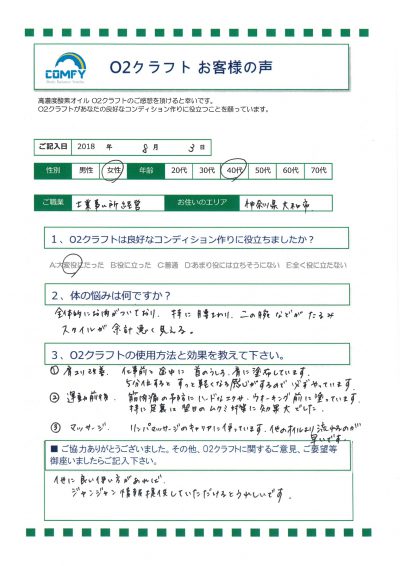 COMFY
O2クラフト お客様の声
高濃度酸素オイル O2クラフトのご感想を頂けると幸いです。
O2クラフトがあなたの良好なコンディション作りに役立つことを願っています。
ご記入日 2018 年 8 月 3 日
性別 男性 女性 年齢 20代 30代 40代 50代 60代 70代
ご職業 士業事ム所経営 お住いのエリア 神奈川県大和市
1、O2クラフトは良好なコンディション作りに役立ちましたか？
A:大変役にたった B:役に立った C:普通 D:あまり役には立ちそうにない E:全く役に立たない
2、体の悩みは何ですか？
全体的にお肉がついており、特に肩まわり、二の腕などがたるみ
スタイルが余計悪く見える。
3、O2クラフトの使用方法と効果を教えて下さい。
① 肩コリ改善 仕事前と途中に首のうしろ、肩に塗布しています。
5分位するとすっと軽くなる感じがするので必ずやっています。
② 運動前後 筋肉痛の予防にハードなエクササイズ、ウォーキング前に塗っています。
特に足裏は翌日のムクミ対策に効果大でした。
③ マッサージ リンパマッサージのキャリアに使っています。他のオイルより流れるのが
早いです!
■ ご協力ありがとうございました。その他、O2クラフトに関するご意見、ご要望等
御座いましたらご記入下さい。
他に良い使い方があれば、
ジャンジャン情報提供していただけるとうれしいです。